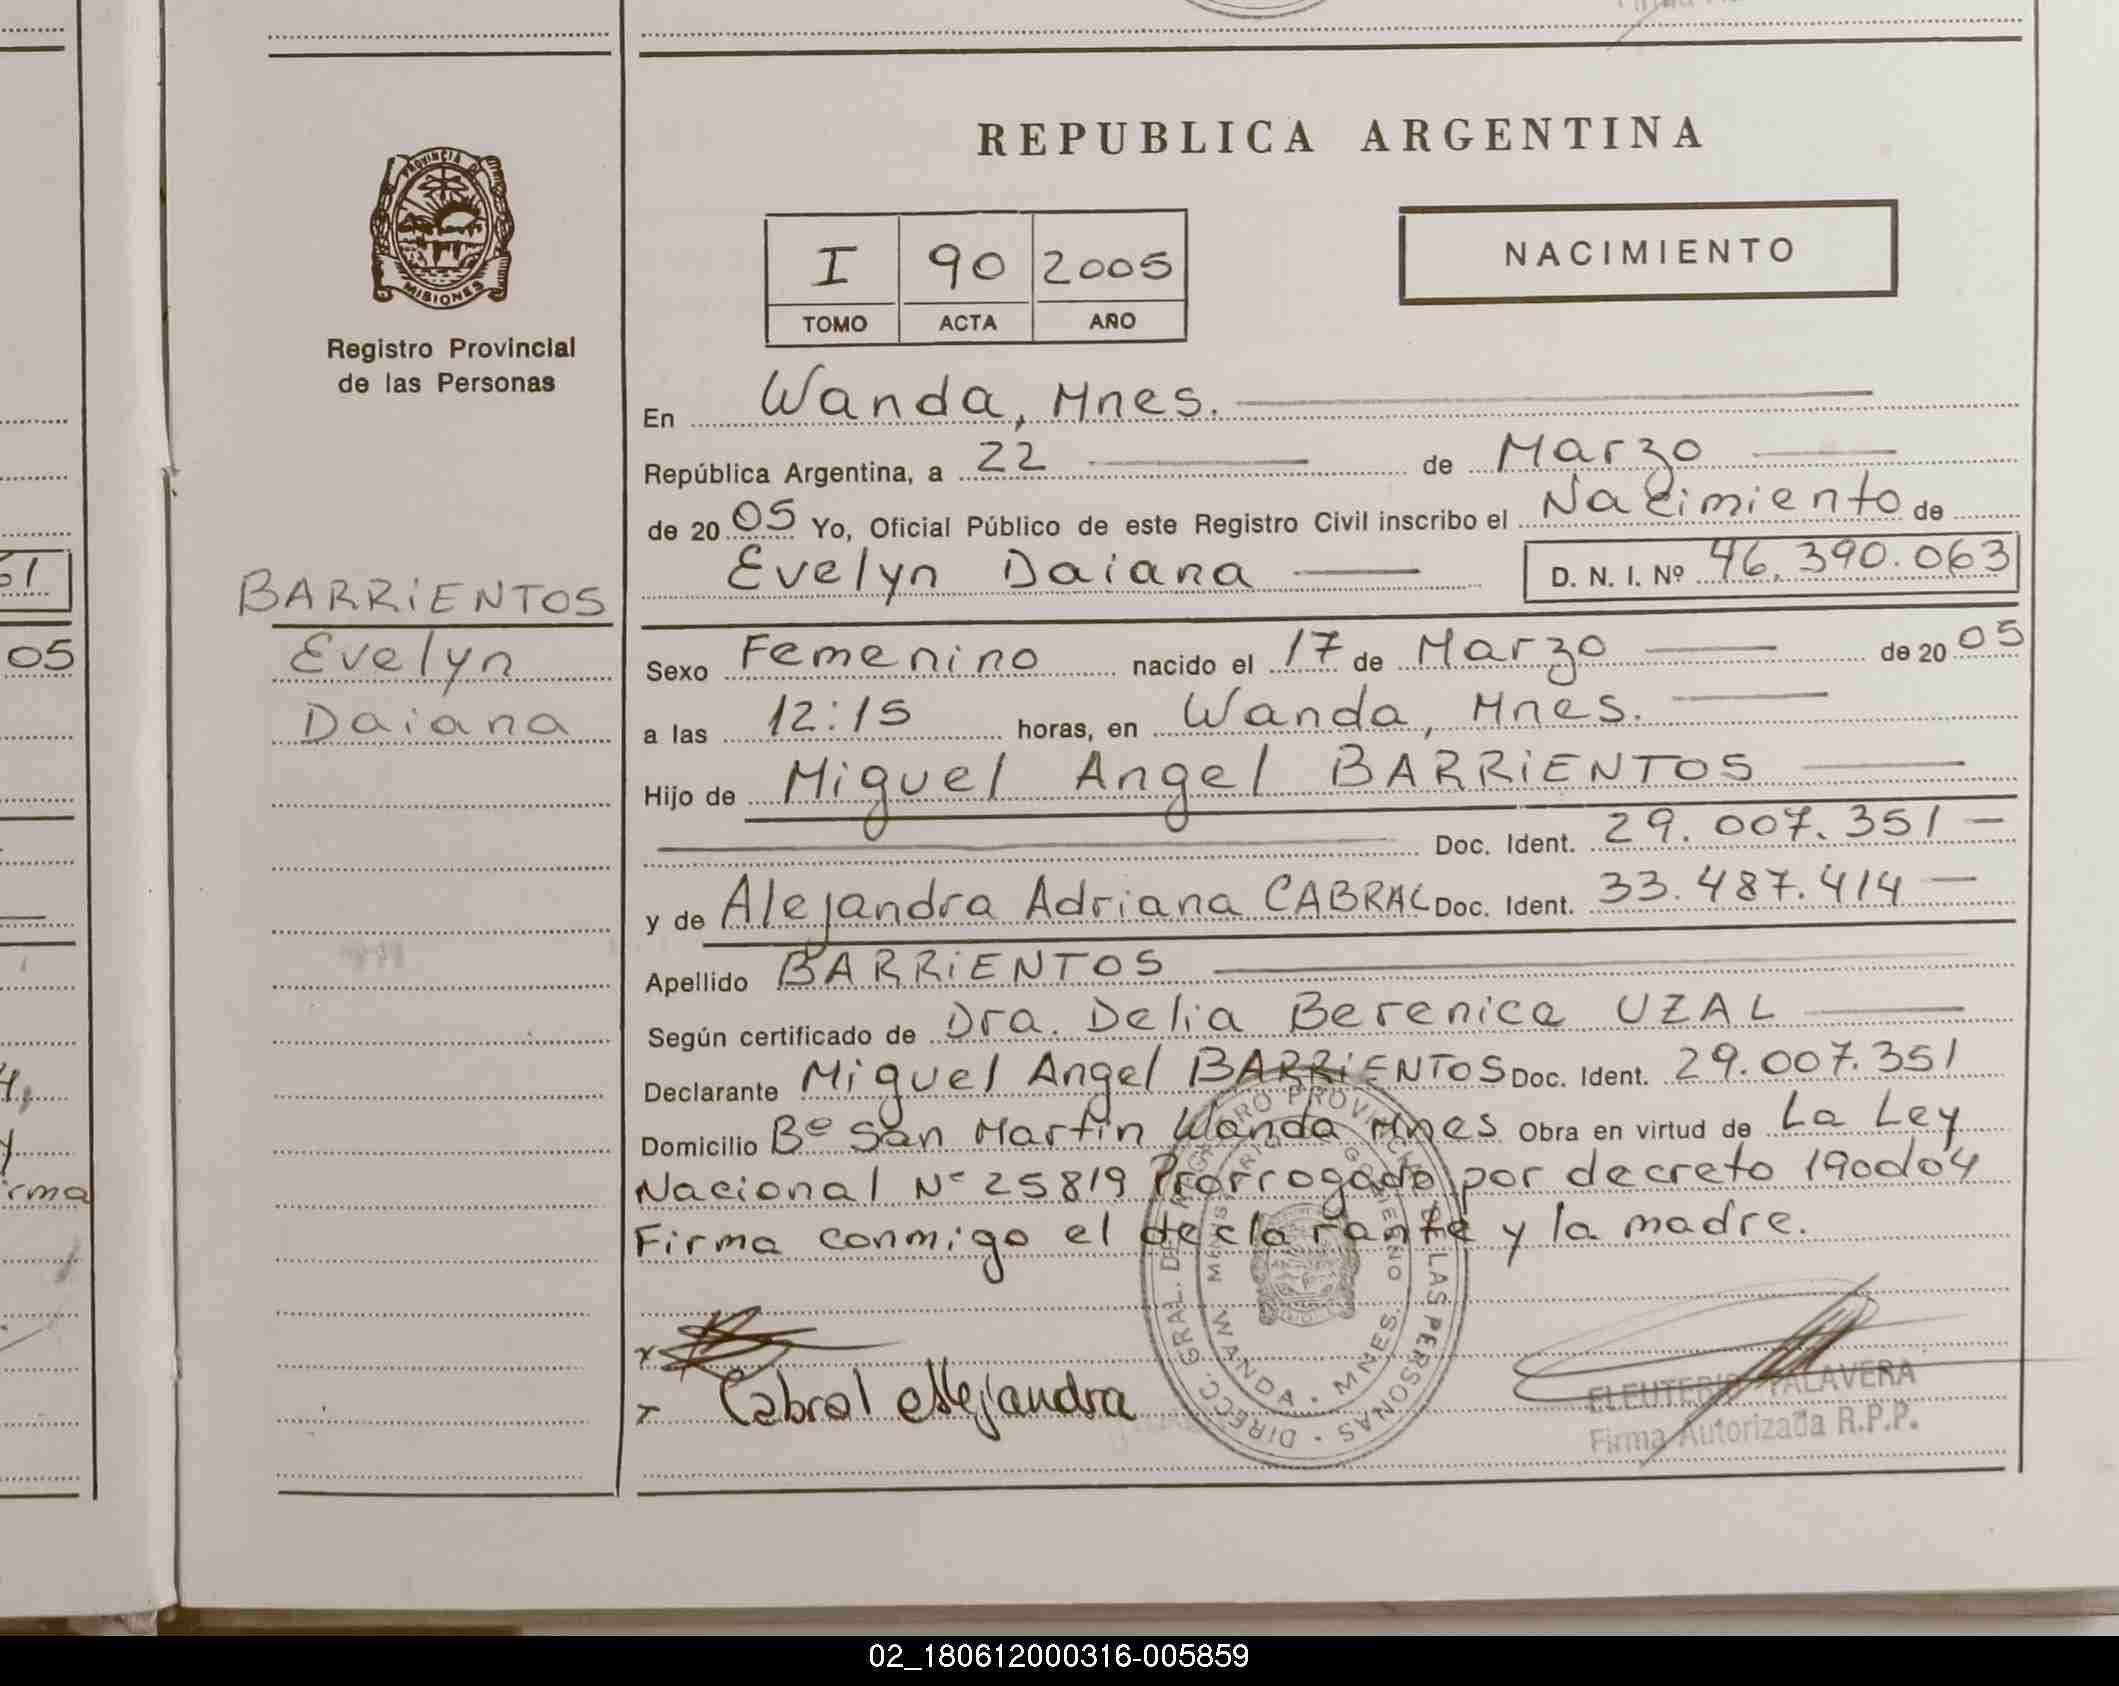 REPUBLICA ARGENTINA
PROVINCIA DE
MISIONES
Registro Provincial
de las Personas
I 90 2005
TOMO ACTA AÑO
NACIMIENTO
En Wanda, Mnes.
República Argentina, a 22 de Marzo
de 2005 Yo, Oficial Público de este Registro Civil inscribo el Nacimiento de
Evelyn Daiana D. N. I. Nº 46.390.063
BARRiENTOS
Evelyn
Daiana
Sexo Femenino nacido el 17 de Marzo de 2005
a las 12:15 horas, en Wanda, Mnes.
Hijo de Miguel Angel BARRiENTOS
Doc. Ident. 29.007.351
y de Alejandra Adriana CABRAL Doc. Ident. 33.487.414
Apellido BARRiENTOS
Según certificado de Dra. Delia Berenice UZAL
Declarante Miguel Angel BARRiENTOS Doc. Ident. 29.007.351
Domicilio Bº San Martin Wanda Mnes Obra en virtud de La Ley
Nacional Nº 25819 Prorrogado por decreto 190do04
Firma conmigo el declarante y la madre.
Cabral Alejandra
WANDA • MNES.
ELEUTERIO TALAVERA
Firma Autorizada R.P.P.
51
05
02_180612000316-005859